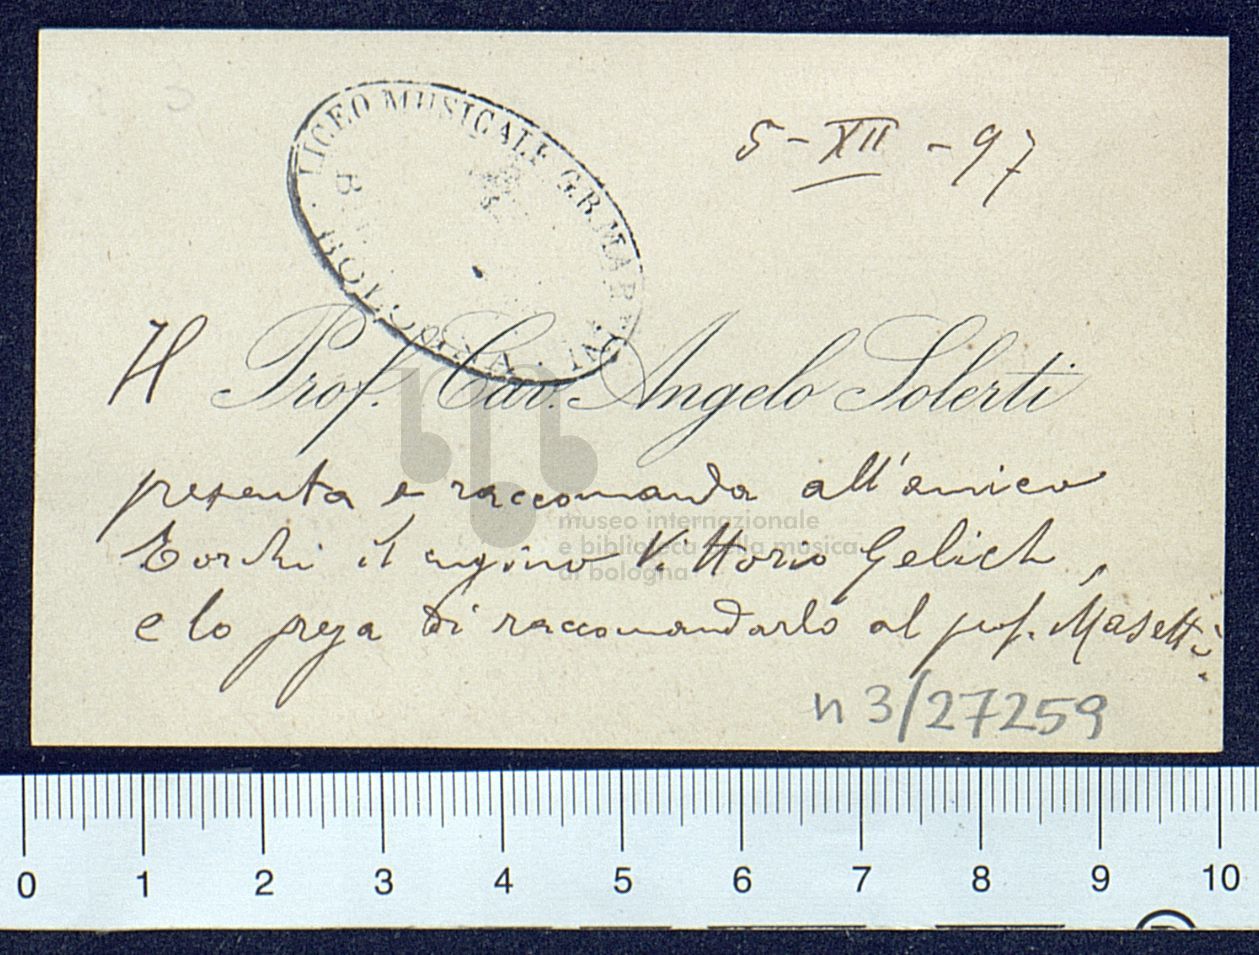 LICEO MUSICALE G.B. MARTINI
BOLOGNA
5-XII-97
Il Prof. Cav. Angelo Solerti
presenta e raccomanda all'amico
Torchi il cugino Vittorio Gelich,
e lo prega di raccomandarlo al prof. Masetti.
n 3/27259
museo internazionale
e biblioteca della musica
di bologna
0 1 2 3 4 5 6 7 8 9 10